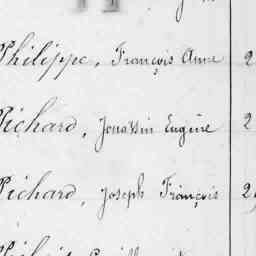 Philippe, François Anne 2
Pichard, Jonathin Eugène 2
Pichard, Joseph François 2